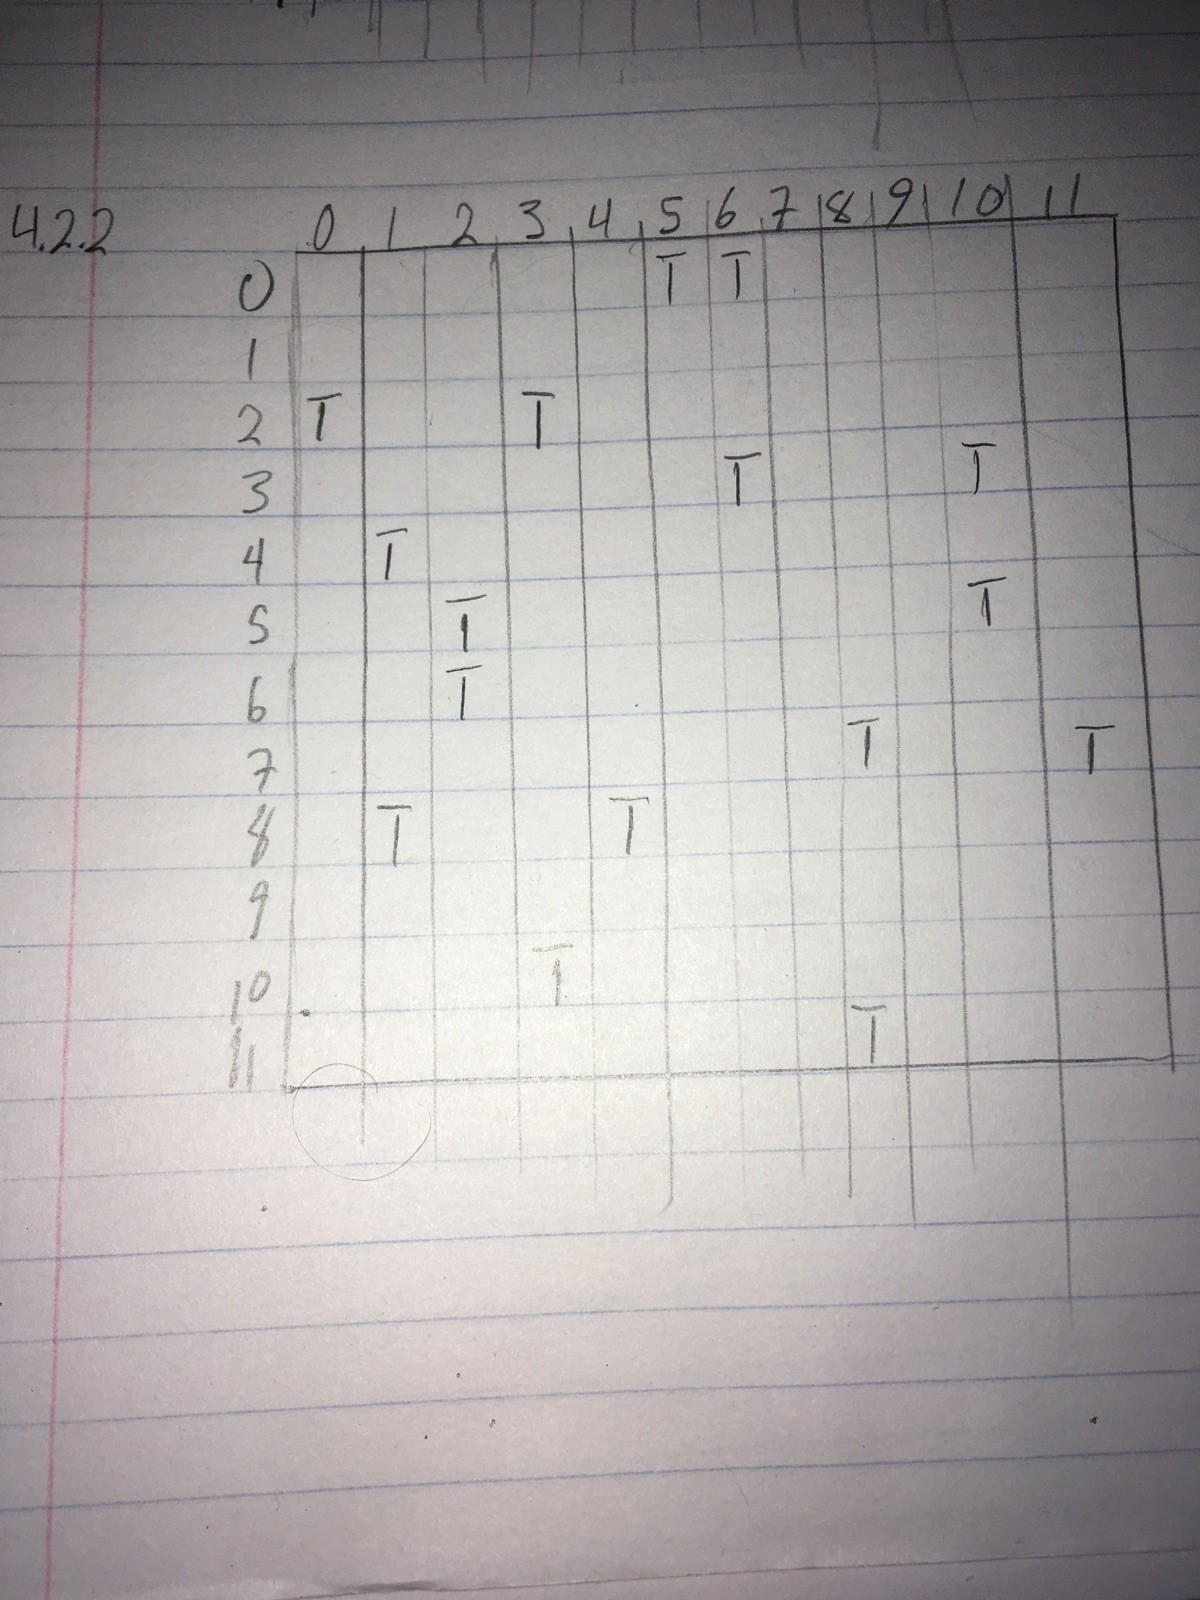 4.2.2 0 1 2 3 4 5 6 7 8 9 10 11
0 T T
1
2 T T
3 T T
4 T
5 T T
6 T
7 T T
8 T T
9
10 T
11 T